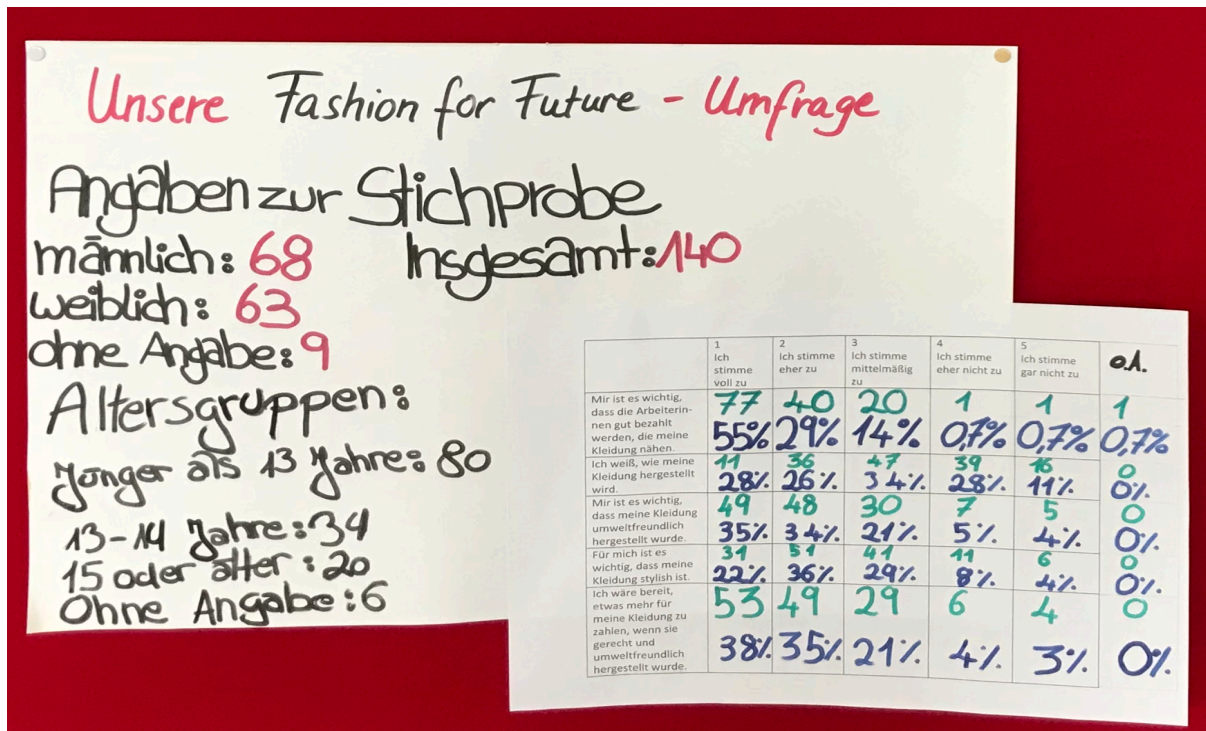 Unsere Fashion for Future - Umfrage
Angaben zur Stichprobe
männlich: 68 Insgesamt: 140
weiblich: 63
ohne Angabe: 9
Altersgruppen:
Jünger als 13 Jahre: 80
13-14 Jahre: 34
15 oder älter: 20
Ohne Angabe: 6
1 Ich stimme voll zu
2 Ich stimme eher zu
3 Ich stimme mittelmäßig zu
4 Ich stimme eher nicht zu
5 Ich stimme gar nicht zu
o.A.
Mir ist es wichtig,
dass die Arbeiterin-
nen gut bezahlt
werden, die meine
Kleidung nähen.
77 40 20 1 1 1
55% 29% 14% 0,7% 0,7% 0,7%
Ich weiß, wie meine
Kleidung hergestellt
wird.
11 36 47 39 16 0
28% 26% 34% 28% 11% 0%
Mir ist es wichtig,
dass meine Kleidung
umweltfreundlich
hergestellt wurde.
49 48 30 7 5 0
35% 34% 21% 5% 4% 0%
Für mich ist es
wichtig, dass meine
Kleidung stylish ist.
31 51 41 11 6 0
22% 36% 29% 8% 4% 0%
Ich wäre bereit,
etwas mehr für
meine Kleidung zu
zahlen, wenn sie
gerecht und
umweltfreundlich
hergestellt wurde.
53 49 29 6 4 0
38% 35% 21% 4% 3% 0%